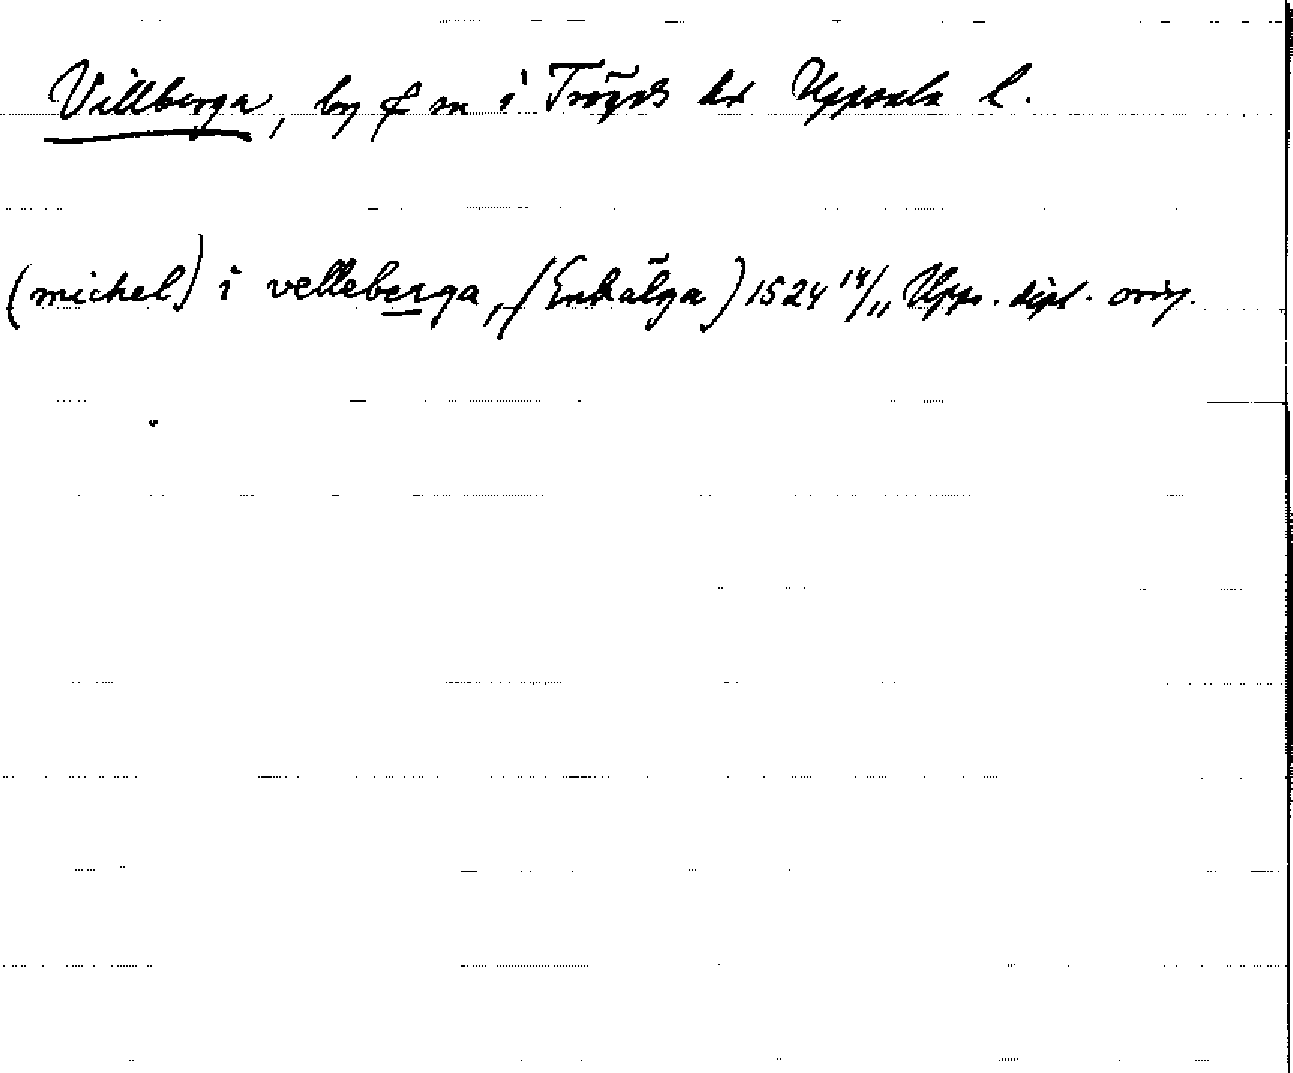 Villberga, by f m i Trögds hd Uppsala l.
(michel) i velleberga, (Enhälga) 1524 14/11 Upps. dipl. orig.